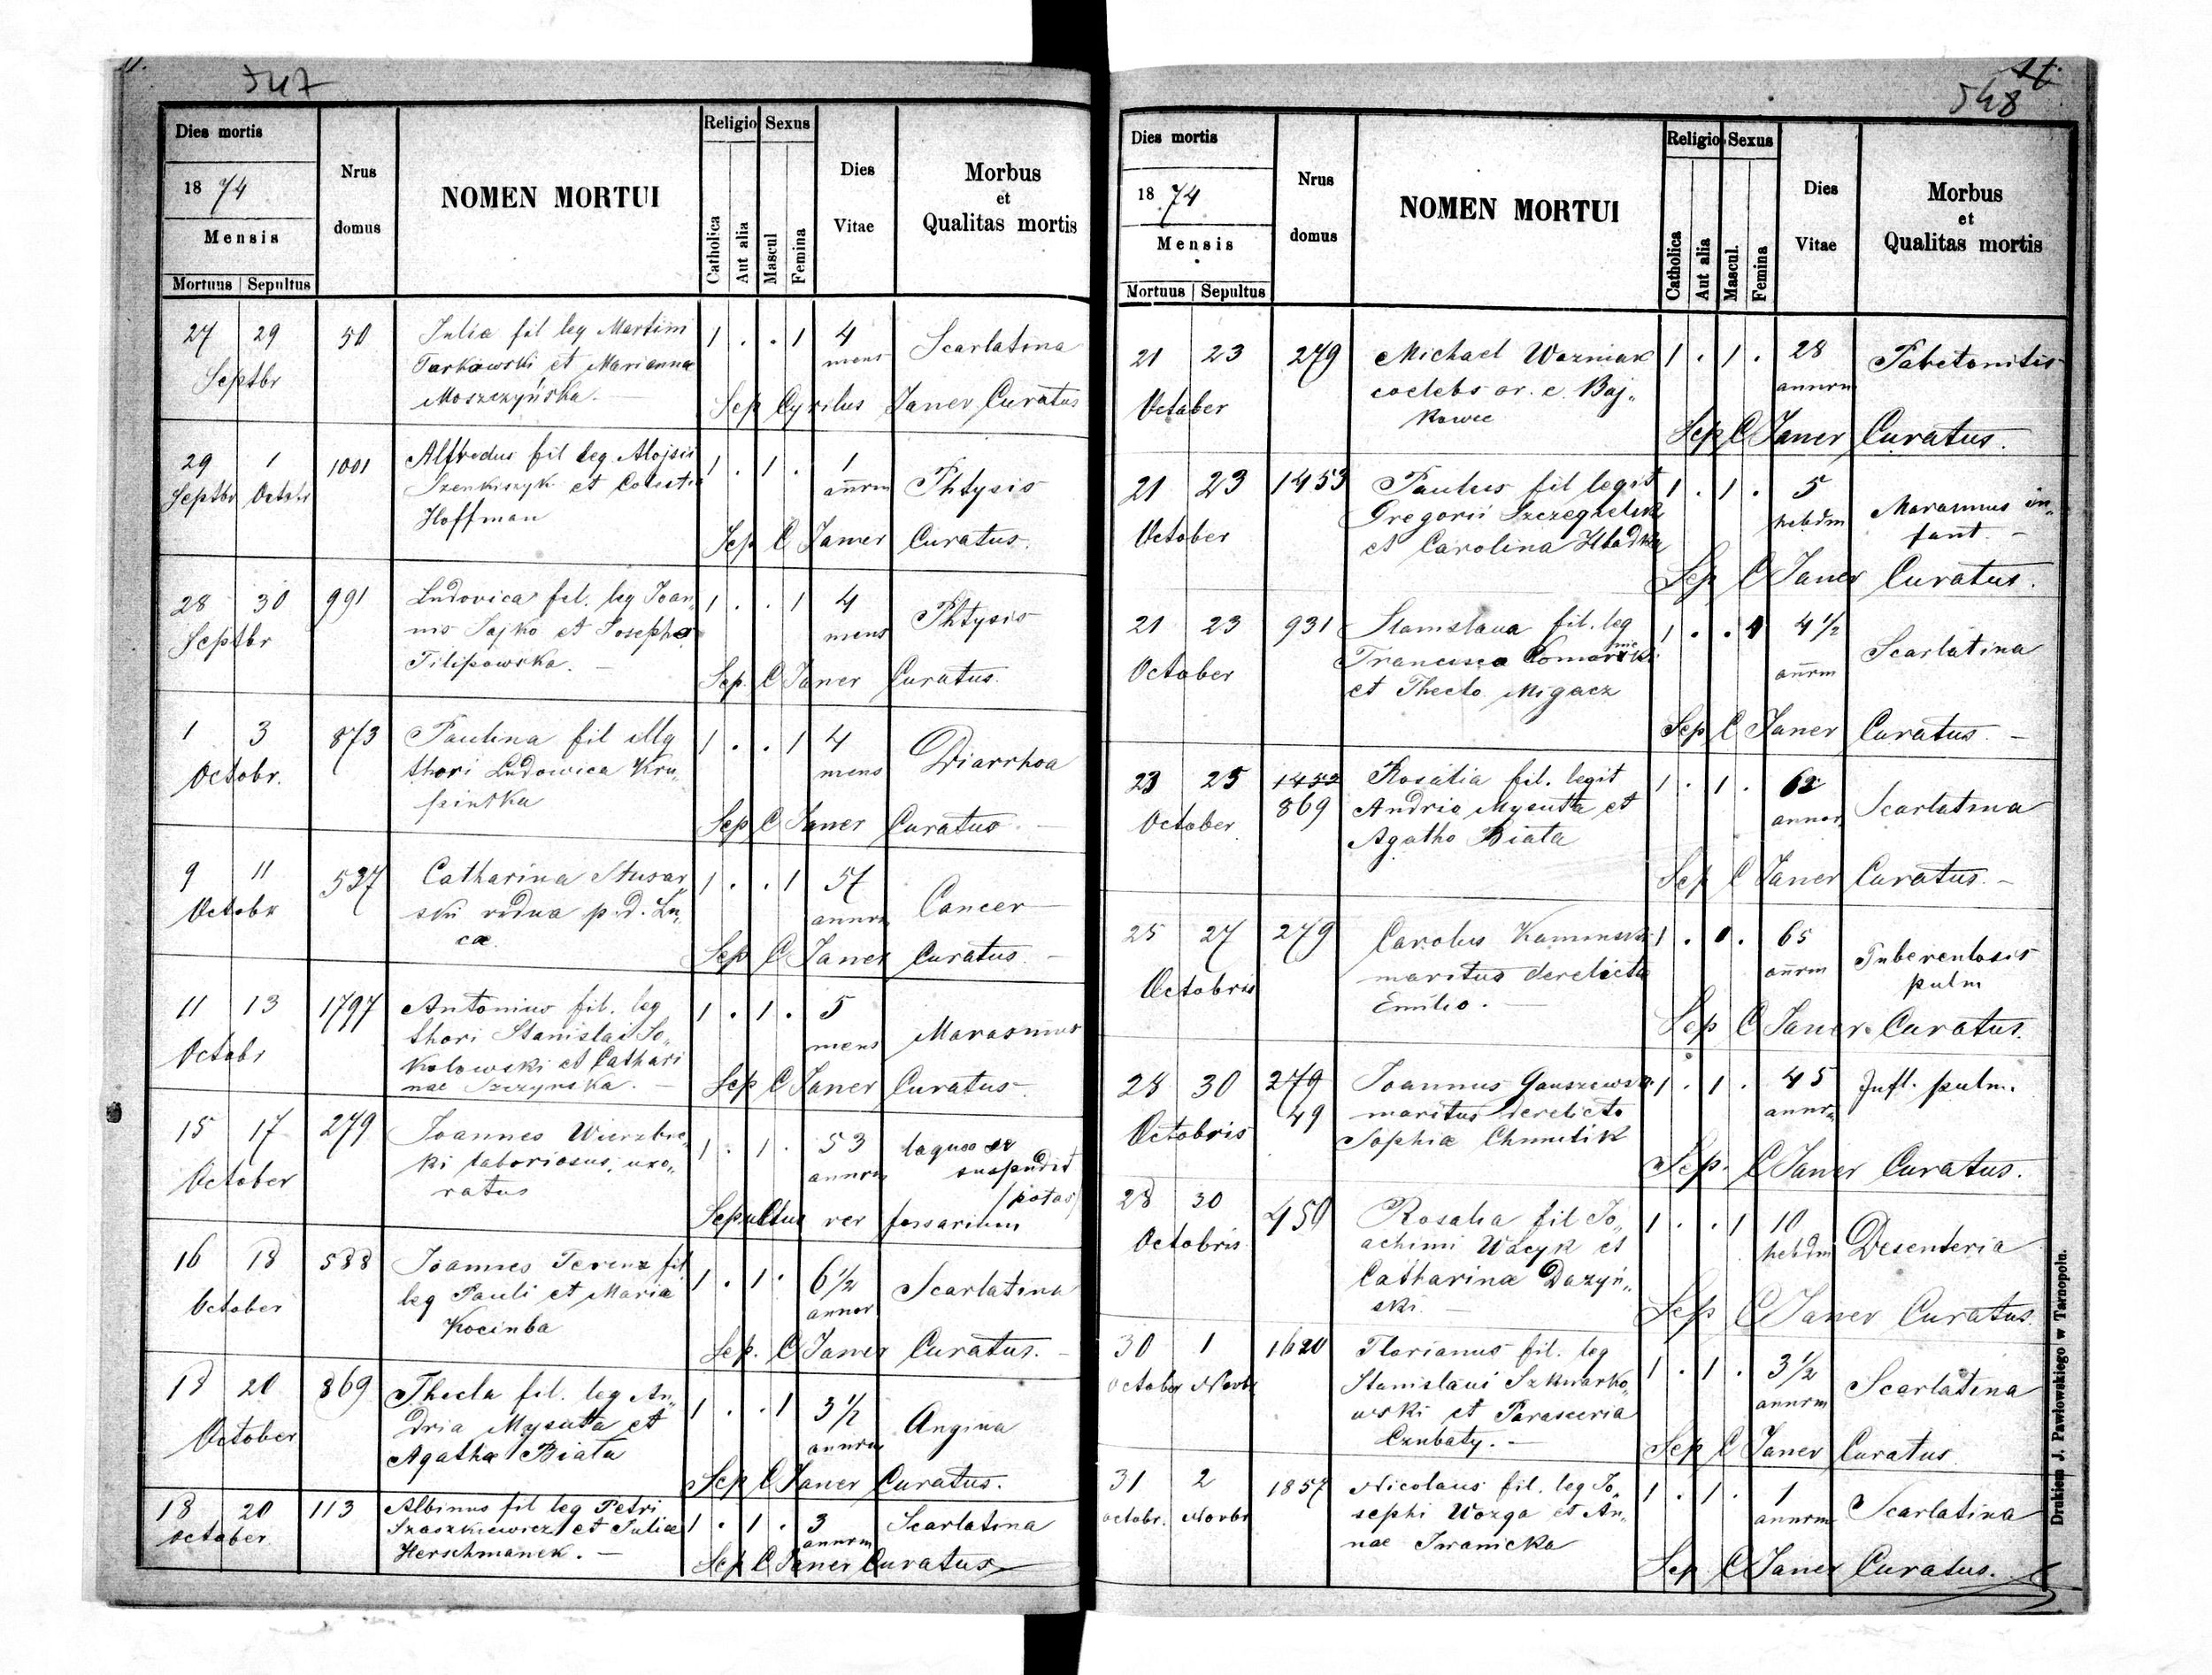 547
Dies mortis
1874
Mensis
Mortuus Sepultus
Nrus domus
NOMEN MORTUI
Religio Sexus
Catholica Aut alia Mascul Femina
Dies Vitae
Morbus et Qualitas mortis
27 29 50 Julia fil leg Martini 1 . . 1 4 Scarlatina
Septbr Tarkawski et Marianna mens
Moszczyńska. Sep Cyrilus Janer Curatus
29 1 1001 Alfredus fil leg Alojsii 1 . 1 . 1 Phtysis
Septbr Octobr et Celestia añrm
Hoffman Sep C Janer Curatus.
28 30 991 Ludovica fil. leg Joan„ 1 . . 1 4 Phtysis
Septbr nis Sajko et Josepha mens
Filipowska. Sep. C Janer Curatus.
1 3 873 Paulina fil illg 1 . . 1 4 Diarrhoa
Octobr. thori Ludowica Kru„ mens
pinska Sep C Janer Curatus.
9 11 537 Catharina Slusar„ 1 . . 1 57 Cancer
Octobr ski vidua p. d. Lu„ annrm
cæ. Sep C Janer Curatus.
11 13 1797 Antonius fil. leg 1 . 1 . 5 Marasmus
Octobr thori Stanislai So„ mens
kolowski et Cathari
nae Szczyrska. Sep C Janer Curatus
15 17 279 Joannes Wierzbic„ 1 . 1 . 53 laqueo se
October ki laboriosus, uxo„ annrm suspendit
ratus /potas/
Sepultus per fossarium
16 18 588 Joannes Terenz fil 1 . 1 . 6 1/2 Scarlatina
October leg Pauli et Maria annor
Kocinba Sep. C Janer Curatus.
18 20 869 Thecla fil. leg An„ 1 . . 1 3 1/2 Angina
October dria Mysutta et annrm
Agatha Biata Sep C Janer Curatus.
18 20 113 Albinus fil leg Petri 1 . 1 . 3 Scarlatina
October Szaszkiewicz et Julia annrm
Herschmanek. Sep C Janer Curatus
548
Dies mortis
1874
Mensis
Mortuus Sepultus
Nrus domus
NOMEN MORTUI
Religio Sexus
Catholica Aut alia Mascul. Femina
Dies Vitae
Morbus et Qualitas mortis
21 23 279 Michael Wozniak 1 . 1 . 28
October coelebs or. e. Baj„ annrm
kowce Sep C Janer Curatus.
21 23 1453 Paulus fil legit 1 . 1 . 5 Marasmus in„
October Gregorii hebdm fant.
et Carolina Hladka Sep C Janer Curatus.
21 23 931 Stanislava fil. leg 1 . . 1 4 1/2 Scarlatina
October Francisca añrm
et Thecla Migacz Sep C Janer Curatus.
23 25 1452 Rosalia fil. legit 1 . 1 . 62 Scarlatina
October 869 Andria Mysutta et annor
Agatha Biata Sep C Janer Curatus.
25 27 279 Carolus Kaminski 1 . 1 . 65 Tuberculosis
Octobris maritus derelicta añrm pulm
Emilia. Sep C Janer Curatus.
28 30 279 Joannus Ganszewski 1 . 1 . 45 Infl. pulm.
Octobris 49 maritus derelicta annrm
Sophia Chmilik Sep. C Janer Curatus.
28 30 450 Rosalia fil Jo„ 1 . . 1 10 Desenteria
Octobris achimi Wacyk et hebdm
Catharinæ Dazyń„
ski. Sep C Janer Curatus.
30 1 1620 Florianus fil. leg 1 . 1 . 3 1/2 Scarlatina
October Novbr Stanislaus Szkwarko„ annrm
wski et Parasceria
Czubaty. Sep C Janer Curatus
31 2 1857 Nicolaus fil. leg Jo„ 1 . 1 . 1 Scarlatina
Octobr. Novbr sephi Wozga et An„ annrm
nae Iwanicka Sep C Janer Curatus.
Drukiem J. Pawłowskiego w Tarnopolu.